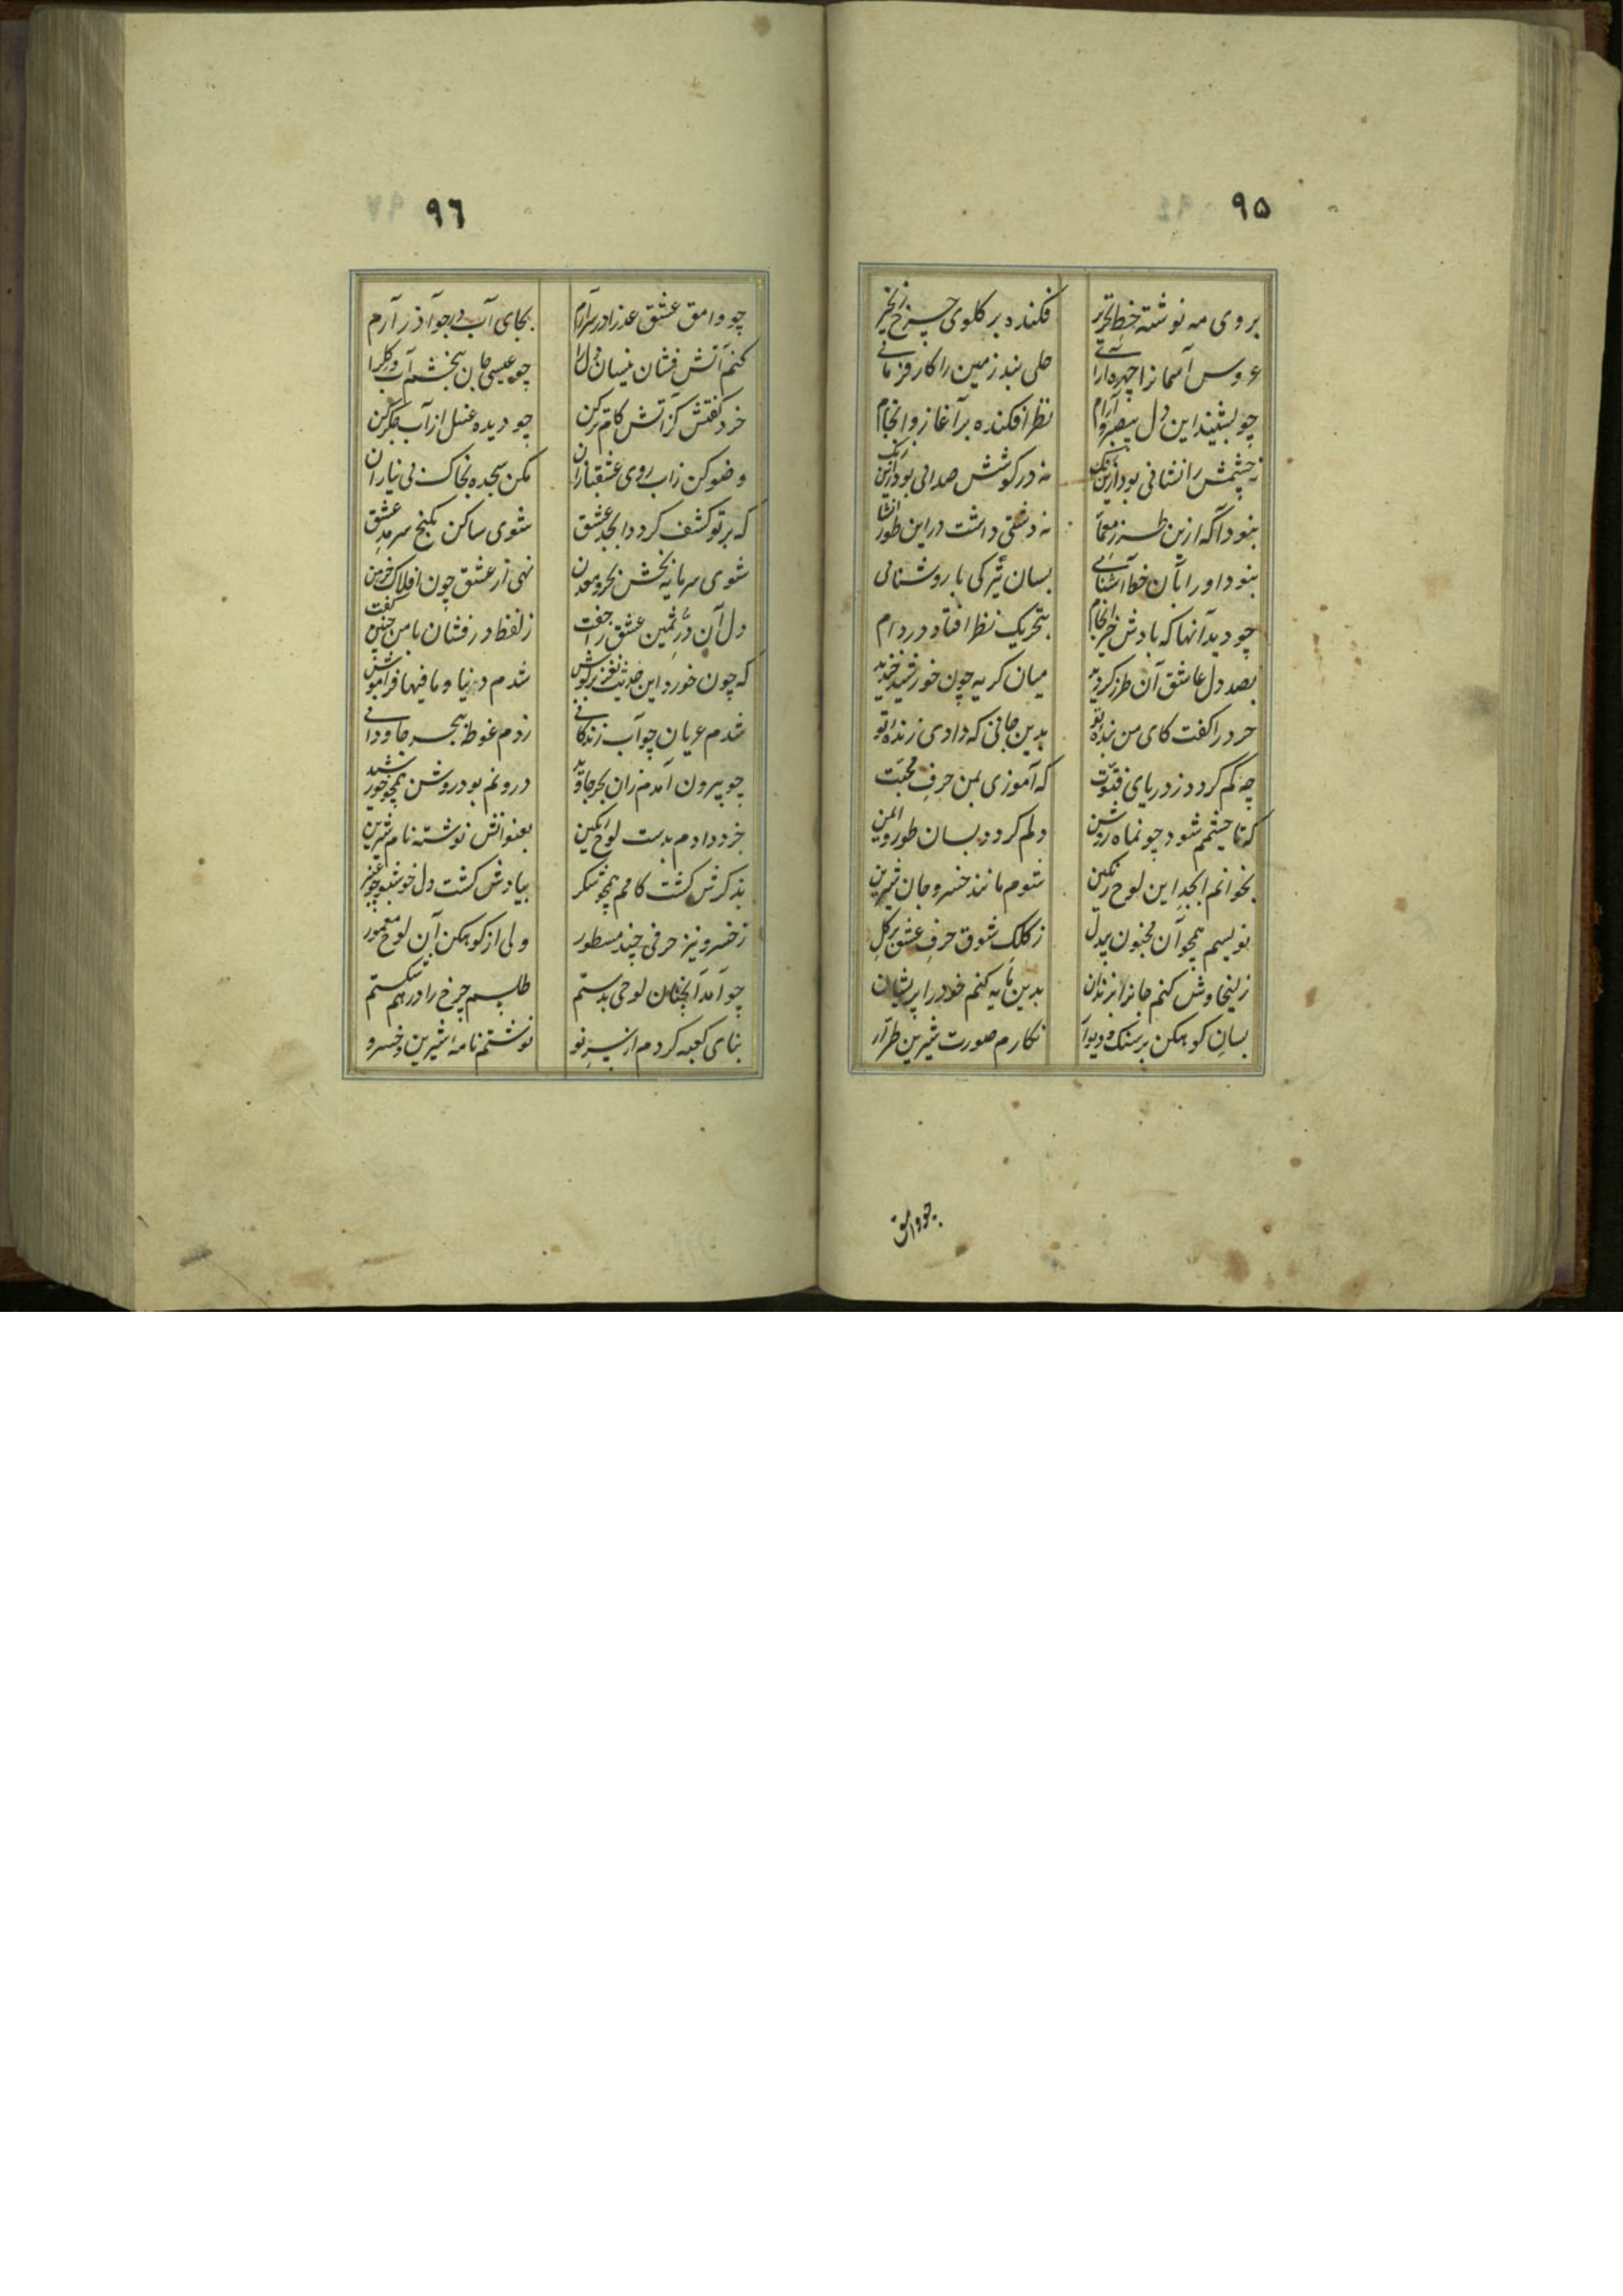 ۹۵
بروی مه نوشته خط تحریر فکنده بر کلوی چرخ زنجیر
عروس آسمانرا چهره آرائی حلی بند زمین را کارفرمائی
چو بشنید این دل بیصبر و آرام نظر افکنده بر آغاز و انجام
نه چشمش را نشانی بود ازین رنگ نه در کوشش صدائی بود ازین
نبود آکه ازین طرز معما نه دستی داشت در این طور انشا
نبود او را بآن خط آشنائی بسان تیرکی با روشنائی
چو دید آنها که بادش خیر انجام بتحریک نظر افتاد در دام
بصد دل عاشق آن طرز کردید میان کریه چون خورشید خندید
خرد را کفت کای من بنده تو بدین جانی که دادی زنده تو
چه کم کردد ز دریای فتوت که آموزی بمن حرف محبت
که تا چشمم شود چو نماه روشن دلم کردد بسان طور ایمن
بخوانم ابجد این لوح رنکین شوم مانند خسرو جان شیرین
نویسم همچو آن مجنون بیدل ز کلک شوق حرف عشق بر کل
زلیخا وش کنم جانرا بزندان بدین مایه کنم خود را پریشان
بسان کوهکن بر سنک و دیوار نکارم صورت شیرین طرار
چو وامق
۹۶
چو وامق عشق عذرا در سر آرم بجای آب در جو آذر آرم
کنم آتش فشان نیسان دل را چو عیسی جان ببخشم آب و کل را
خرد کفتش کز آتش کام تر کن چو دیده غسل از آب جکر کن
وضو کن زاب روی عشقبازان مکن سجده بخاک بی نیازان
که بر تو کشف کردد ابجد عشق شوی ساکن بکنج سرمد عشق
شوی سرمایه بخش بحر و معدن نهی از عشق چون افلاک خرمن
دل آن در ثمین عشق را سفت ز لفظ در فشان با من چنین کفت
که چون خورد این حدیث نغز بر کوش شدم دنیا و مافیها فراموش
شدم عریان چو آب زندکانی زدم غوطه ببحر جاودانی
چو بیرون آمدم زان بحر جاوید درونم بود روشن همچو خورشید
خرد دادم بدست لوح رنکین بعنوانش نوشته نام شیرین
بذکرش کشت کامم همچو شکر بیادش کشت دل خوشبو چو عنبر
ز خسرو نیز حرفی چند مسطور ولی از کوهکن آن لوح معمور
چو آمد آنچنان لوحی بدستم طلسم چرخ را در هم شکستم
بنای کعبه کردم از سر نو نوشتم نامه شیرین و خسرو